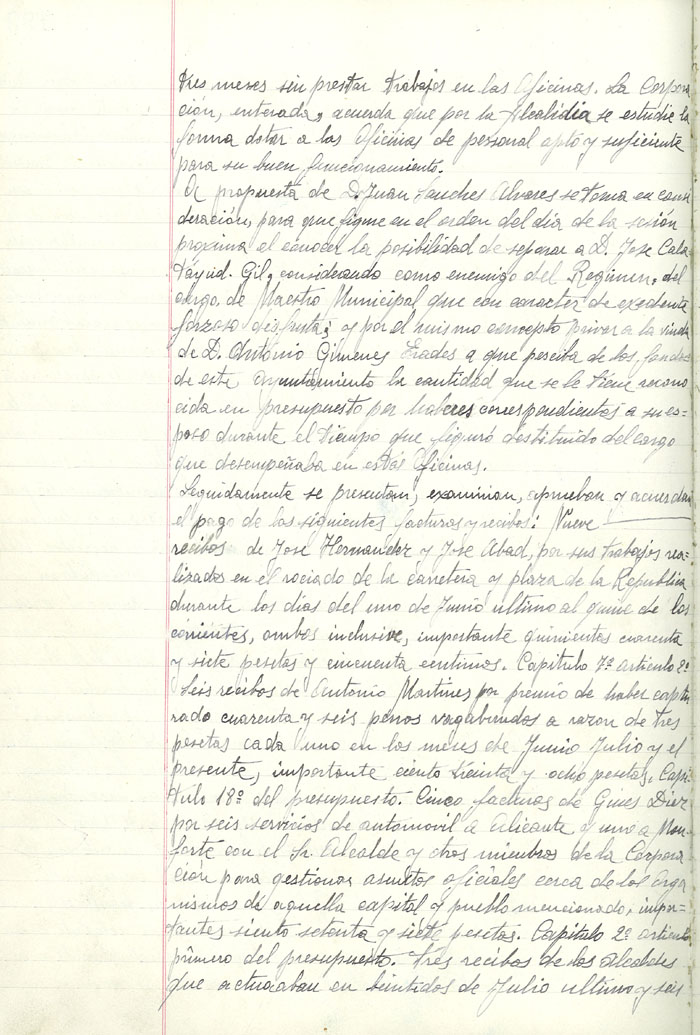 tres meses sin prestar trabajos en las Oficinas. La Corpora
ción, enterada, acuerda que por la Alcaldia se estudie la
forma dotar a las Oficinas de personal apto y suficiente
para su buen funcionamiento.
A propuesta de D. Juan Sanches Alvares se toma en consi
deración, para que figure en el orden del dia de la sesión
proxima el conocer la posibilidad de separar a D. Jose Cala-
tayud. Gil, considerando como enemigo del Regimen, del
cargo, de Maestro Municipal que con caracter de excedente
forzoso disfruta; y por el mismo concepto privar a la viuda
de D. Antonio Gimenes Erades a que perciba de los fondos
de este ayuntamiento la cantidad que se le tiene recono
cida en presupuesto por haberes correspondientes a su es-
poso durante el tiempo que figuró destituido del cargo
que desempeñaba en estas Oficinas.
Seguidamente se presentan, examinan, aprueban y acuerdan
el pago de los siguientes facturas y recibos: Nueve
recibos de Jose Hernandez y Jose Abad, por sus trabajos rea-
lizados en el rociado de la carretera y plaza de la Republica
durante los dias del uno de Junio ultimo al quince de los
corrientes, ambos inclusive, importante quinientas cuarenta
y siete pesetas y cincuenta centimos. Capitulo 7º articulo 2º
Seis recibos de Antonio Martines por premio de haber captu
rado cuarenta y seis perros vagabundos a razon de tres
pesetas cada uno en los meses de Junio Julio y el
presente, importante ciento treinta y ocho pesetas. Capi-
tulo 18º del presupuesto. Cinco facturas de Gines Diez
por seis servicios de automovil a Alicante y uno a Mon-
forte con el Sr. Alcalde y otros miembros de la Corpora
ción para gestionar asuntos oficiales cerca de los Orga
nismos de aquella capital y pueblo mencionado, impor-
tantes siento setenta y siete pesetas. Capitulo 2º articulo
primero del presupuesto. Tres recibos de los Alcaldes
que actuaban en bintidos de Julio ultimo y seis